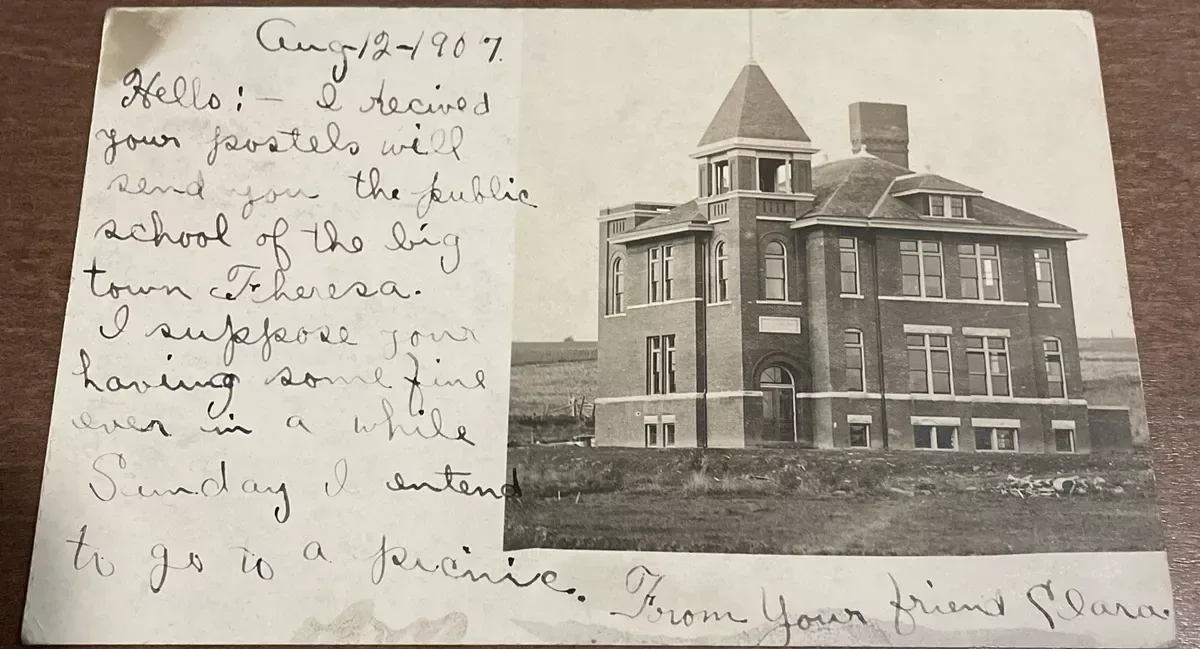 Aug-12-1907.
Hello:- I recived
your postels will
send you the public
school of the big
town Theresa.
I suppose your
having some fine
ever in a while
Sunday I entend
to go to a picnic.
From Your friend Clara.